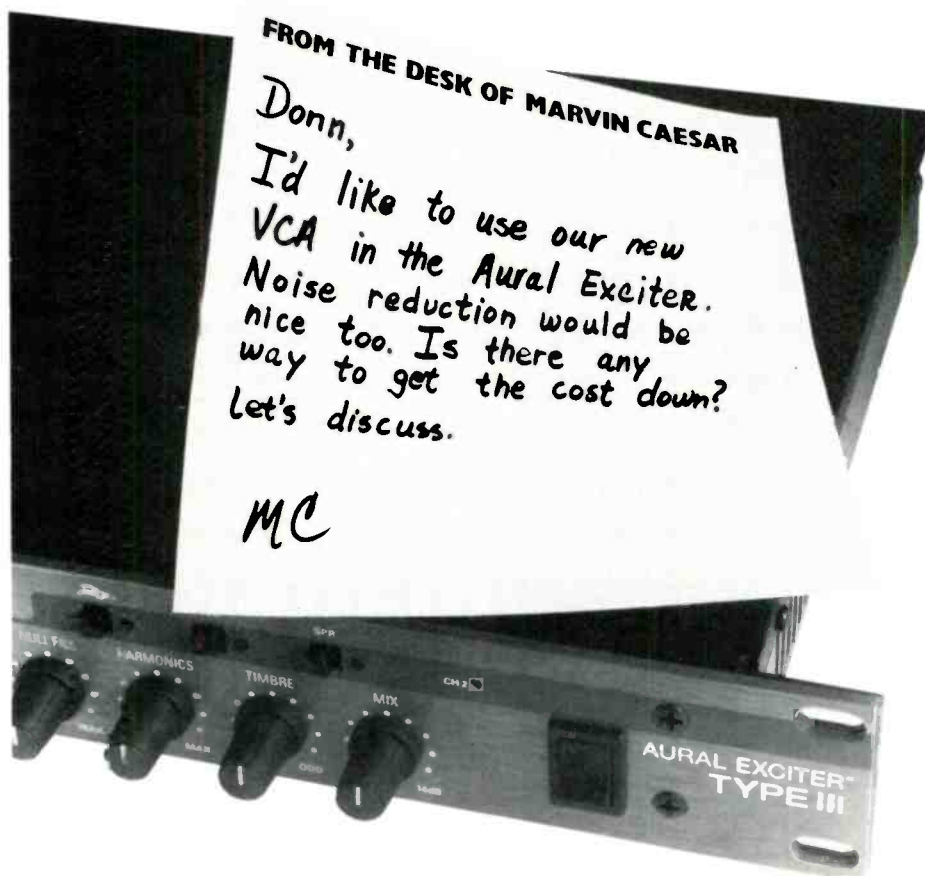 FROM THE DESK OF MARVIN CAESAR
Donn,
I'd like to use our new
VCA in the Aural Exciter.
Noise reduction would be
nice too. Is there any
way to get the cost down?
Let's discuss.
MC
SPR
NULL FILL HARMONICS TIMBRE MIX
CH 2
MAX ODD
AURAL EXCITER
TYPE III